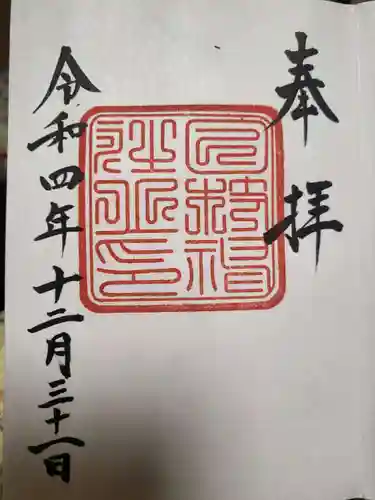 奉拝
令和四年十二月三十一日